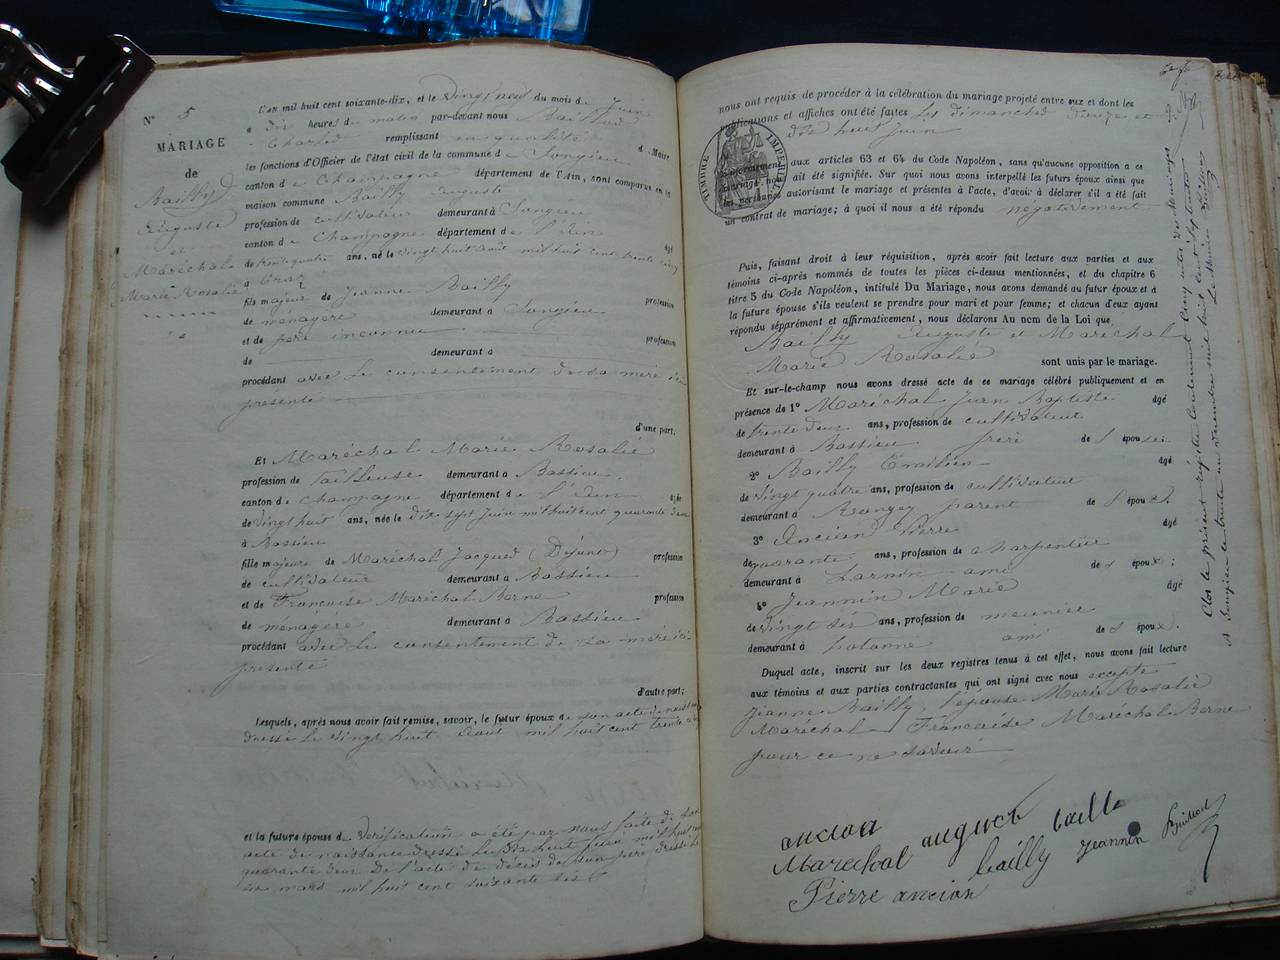 N° 5
MARIAGE
de
Bailly
Auguste
et
Maréchal
Marie Rosalie
L'an mil huit cent soixante-dix, et le Vingt neuf du mois de Juin
à dix heures du matin par-devant nous
Charles remplissant en qualité de Maire
les fonctions d'Officier de l'état civil de la commune de Songieu
canton de Champagne département de l'Ain, sont comparus en la
maison commune Bailly Auguste
profession de cultivateur demeurant à Songieu
canton de Champagne département de l'Ain âgé
de trente quatre ans, né le vingt huit août mil huit cent trente cinq
à
fils majeur de Jeanne Bailly profession
de ménagère demeurant à Songieu
et de père inconnu profession
de demeurant à
procédant avec le consentement de sa mère ici
présente
d'une part;
Et Maréchal Marie Rosalie
profession de Tailleuse demeurant à Bassieu
canton de Champagne département de l'Ain âgée
de vingt huit ans, née le dix sept Juin mil huit cent quarante deux
à Bassieu
fille majeure de Maréchal Jacques (Défunt) profession
de cultivateur demeurant à Bassieu
et de Francoise Maréchal Berne profession
de ménagère demeurant à Bassieu
procédant avec le consentement de sa mère ici
présente
d'autre part;
Lesquels, après nous avoir fait remise, savoir, le futur époux de son acte de naissance
dressé le vingt huit Août mil huit cent trente cinq
et la future épouse de Vérification a été par nous faite de son
acte de naissance dressé le dix huit juin mil huit cent
quarante deux De l'acte de décès de son père dressé le
mars mil huit cent soixante
nous ont requis de procéder à la célébration du mariage projeté entre eux et dont les
publications et affiches ont été faites les dimanches douze et
dix huit juin
TIMBRE IMPÉRIAL
conformément aux articles 63 et 64 du Code Napoléon, sans qu'aucune opposition à ce
mariage nous ait été signifiée. Sur quoi nous avons interpellé les futurs époux ainsi que
les personnes autorisant le mariage et présentes à l'acte, d'avoir à déclarer s'il a été fait
un contrat de mariage; à quoi il nous a été répondu négativement
Puis, faisant droit à leur réquisition, après avoir fait lecture aux parties et aux
témoins ci-après nommés de toutes les pièces ci-dessus mentionnées, et du chapitre 6
titre 5 du Code Napoléon, intitulé Du Mariage, nous avons demandé au futur époux et à
la future épouse s'ils veulent se prendre pour mari et pour femme; et chacun d'eux ayant
répondu séparément et affirmativement, nous déclarons Au nom de la Loi que
Bailly Auguste et Maréchal
Marie Rosalie sont unis par le mariage.
Et sur-le-champ nous avons dressé acte de ce mariage célébré publiquement et en
présence de 1° Maréchal Jean Baptiste âgé
de trente deux ans, profession de cultivateur
demeurant à Bassieu frère de l'épouse
2° Bailly Emilien âgé
de vingt quatre ans, profession de cultivateur
demeurant à parent de l'époux
3° Ancian Pierre âgé
de quarante ans, profession de charpentier
demeurant à ami de l'époux;
4° Jeannin Marie âgé
de vingt six ans, profession de meunier
demeurant à hotonne ami de l'époux.
Duquel acte, inscrit sur les deux registres tenus à cet effet, nous avons fait lecture
aux témoins et aux parties contractantes qui ont signé avec nous excepté
Jeanne Bailly, l'épouse Marie Rosalie
Maréchal Francoise Maréchal Berne
pour ce ne savoir
ancian auguste bailli
Marechal bailly jeannin
Pierre ancian
Clos le présent régistre contenant Cinq actes de Mariages
A Songieu le trente un decembre mil huit cent septante
Le Maire